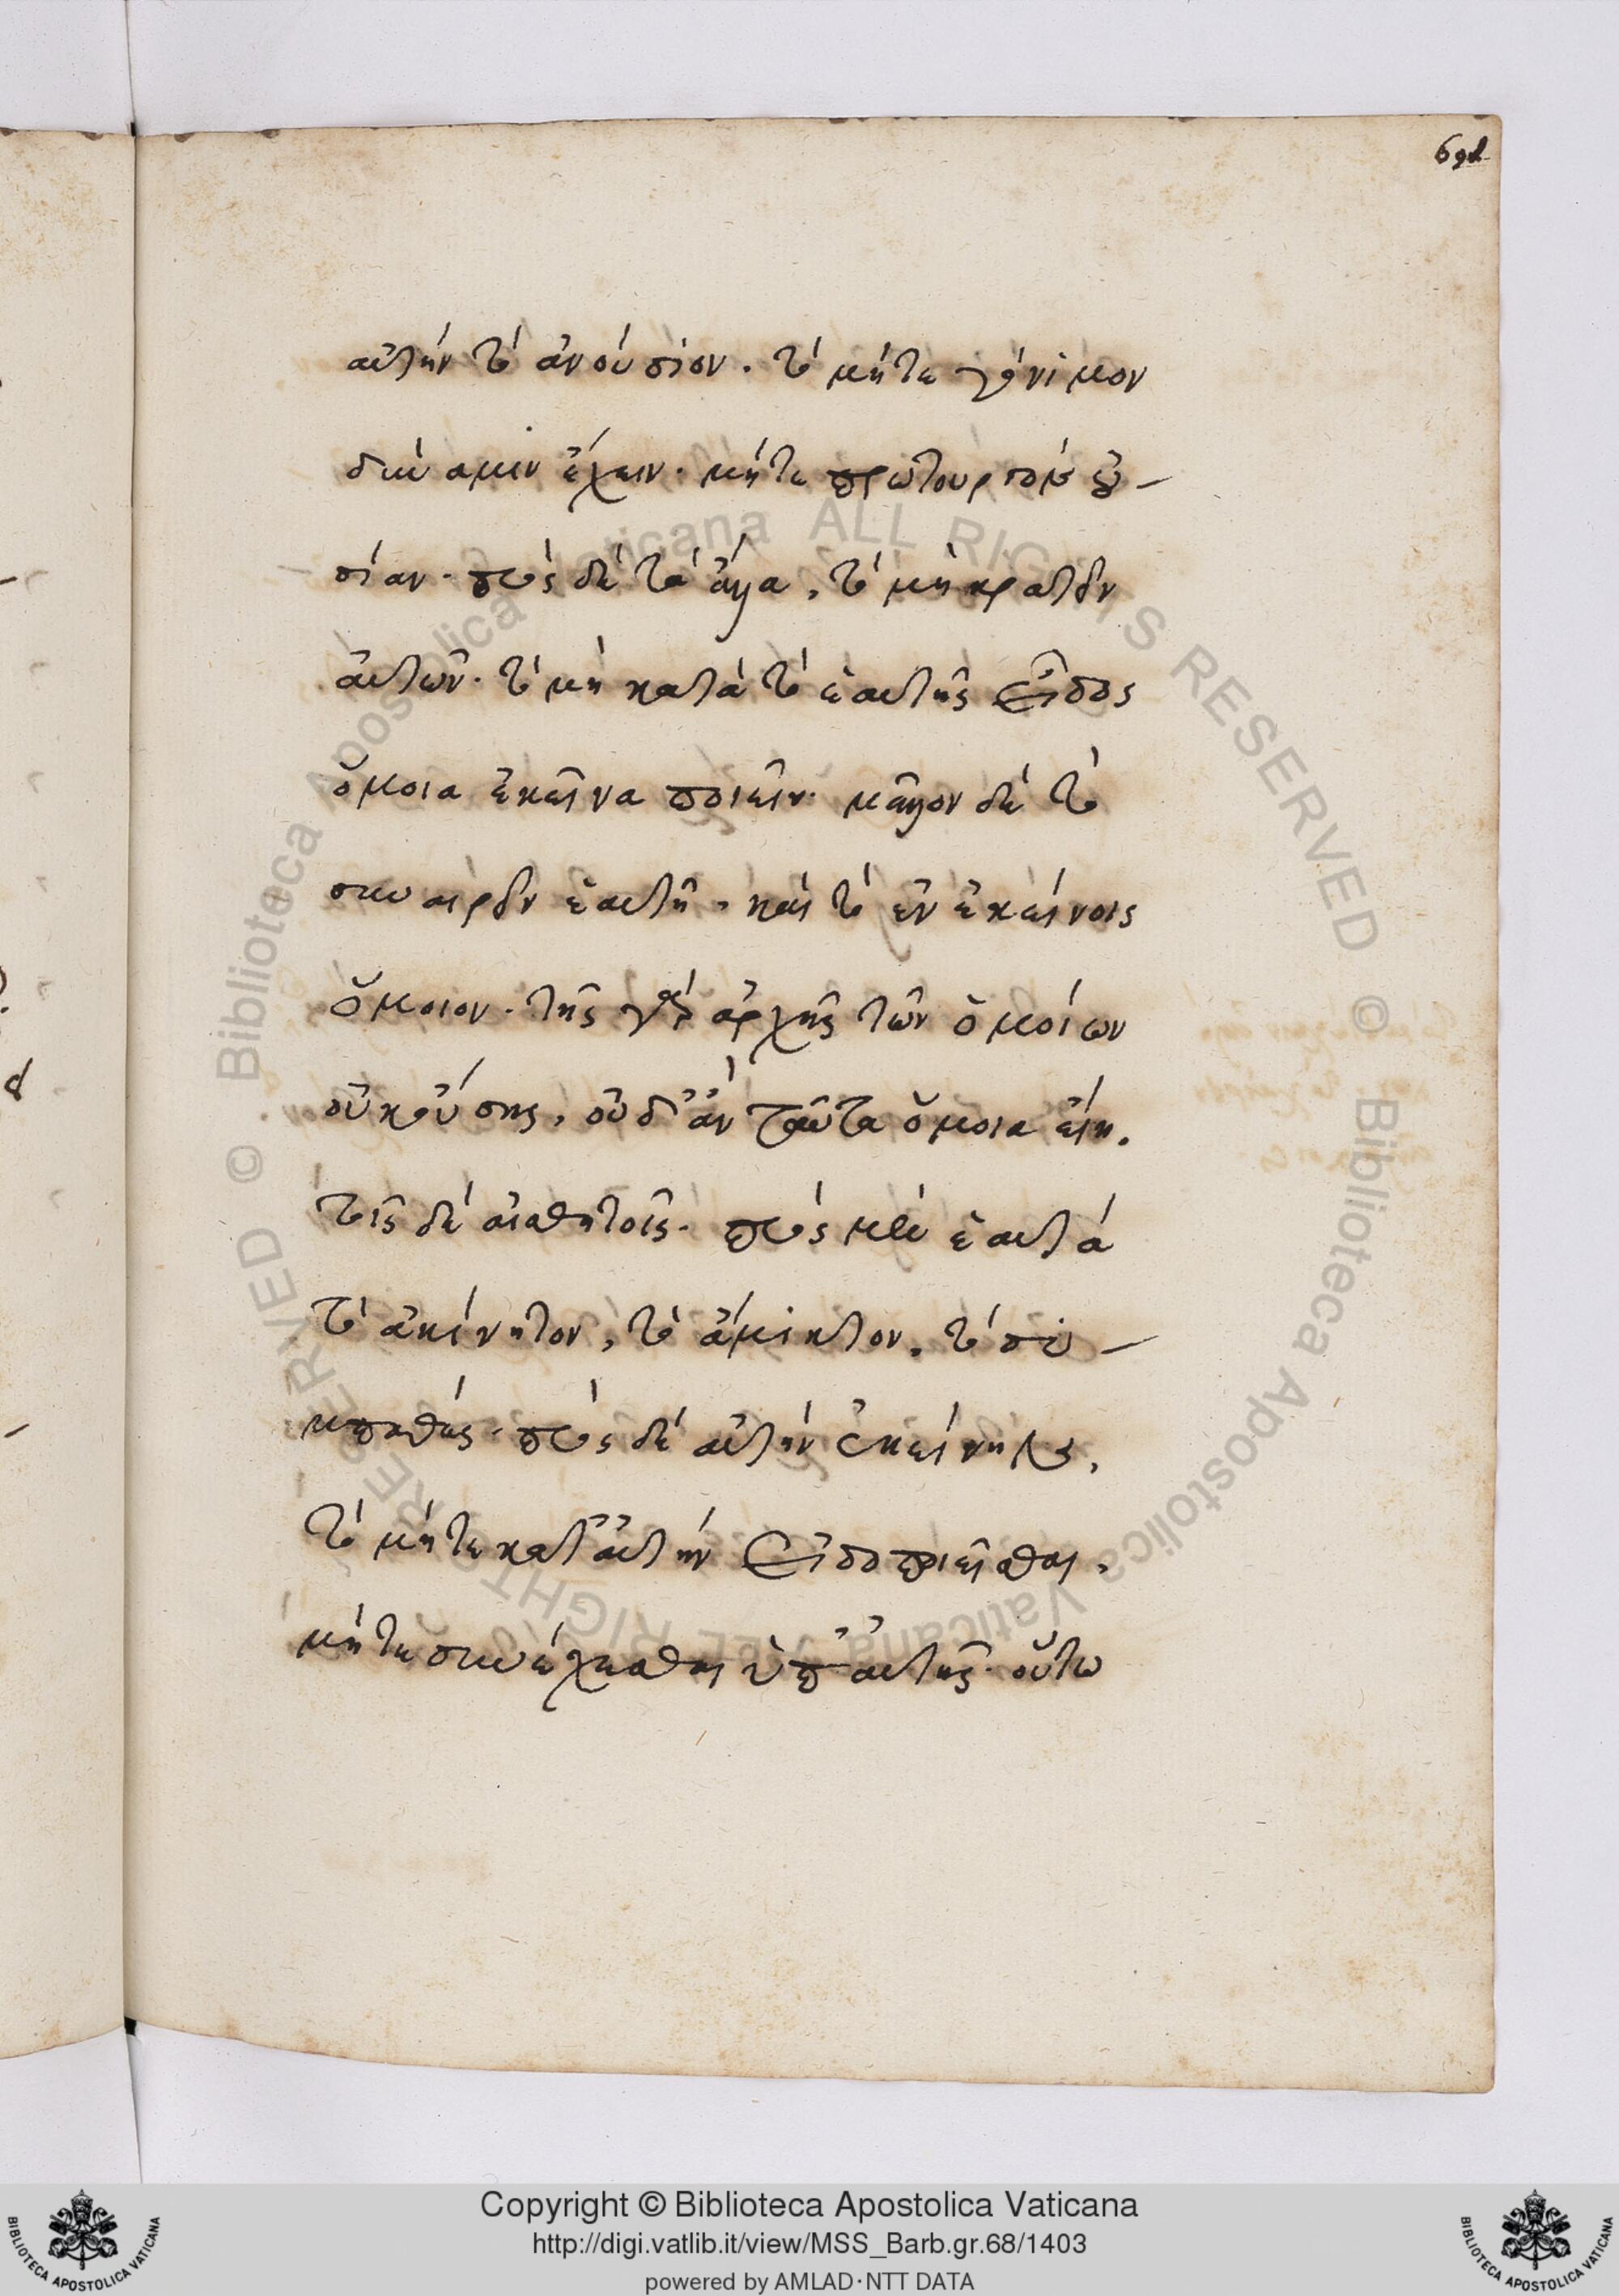 691
αὐτὴν τὸ ἀνούσιον. τὸ μήτε γόνιμον
δύναμιν ἔχειν. μήτε πρωτουργὸν οὐ-
σίαν. πρὸς δὲ τὰ ἄλλα, τὸ μὴ κρατεῖν
αὐτῶν. τὸ μὴ κατὰ τὸ ἑαυτῆς εἶδος
ὅμοια ἐκεῖνα ποιεῖν. μᾶλλον δὲ τὸ
συναιρεῖν ἑαυτῇ. καὶ τὸ ἐν ἐκείνοις
ὅμοιον. τῆς γὰρ ἀρχῆς τῶν ὁμοίων
οὐκ οὔσης, οὐδ' ἂν ταῦτα ὅμοια εἴη.
τοῖς δὲ αἰσθητοῖς. πρὸς μὲν ἑαυτὰ
τὸ ἀκίνητον, τὸ ἄμικτον, τὸ
πρὸς δὲ αὐτὴν ἐκείνην,
τὸ μήτε κατ' αὐτὴν εἰδοποιεῖσθαι,
μήτε συνέχεσθαι ὑπ' αὐτῆς. οὕτω
Copyright © Biblioteca Apostolica Vaticana
http://digi.vatlib.it/view/MSS_Barb.gr.68/1403
powered by AMLAD·NTT DATA
BIBLIOTECA APOSTOLICA VATICANA
BIBLIOTECA APOSTOLICA VATICANA
© Biblioteca Apostolica Vaticana ALL RIGHTS RESERVED © Biblioteca Apostolica Vaticana ALL RIGHTS RESERVED